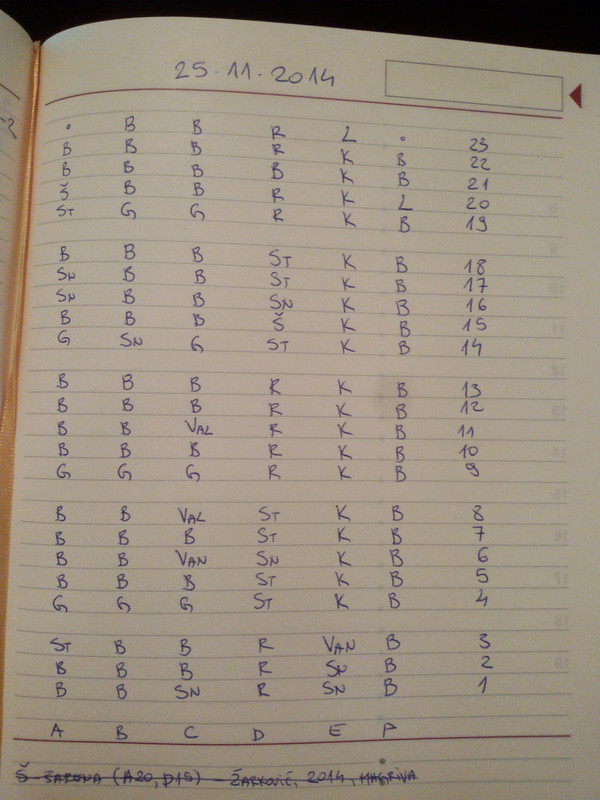 25.11.2014
. B B R L . 23
B B B R K B 22
B B B B K B 21
Š B B R K L 20
ST G G R K B 19
B B B ST K B 18
SN B B ST K B 17
SN B B SN K B 16
B B B Š K B 15
G SN G ST K B 14
B B B R K B 13
B B B R K B 12
B B VAL R K B 11
B B B R K B 10
G G G R K B 9
B B VAL ST K B 8
B B B ST K B 7
B B VAN SN K B 6
B B B ST K B 5
G G G ST K B 4
ST B B R VAN B 3
B B B R SN B 2
B B SN R SN B 1
A B C D E F
Š - ŠARENA (A20, D15) - ŽARKOVIĆ, 2014, MAGRIVA